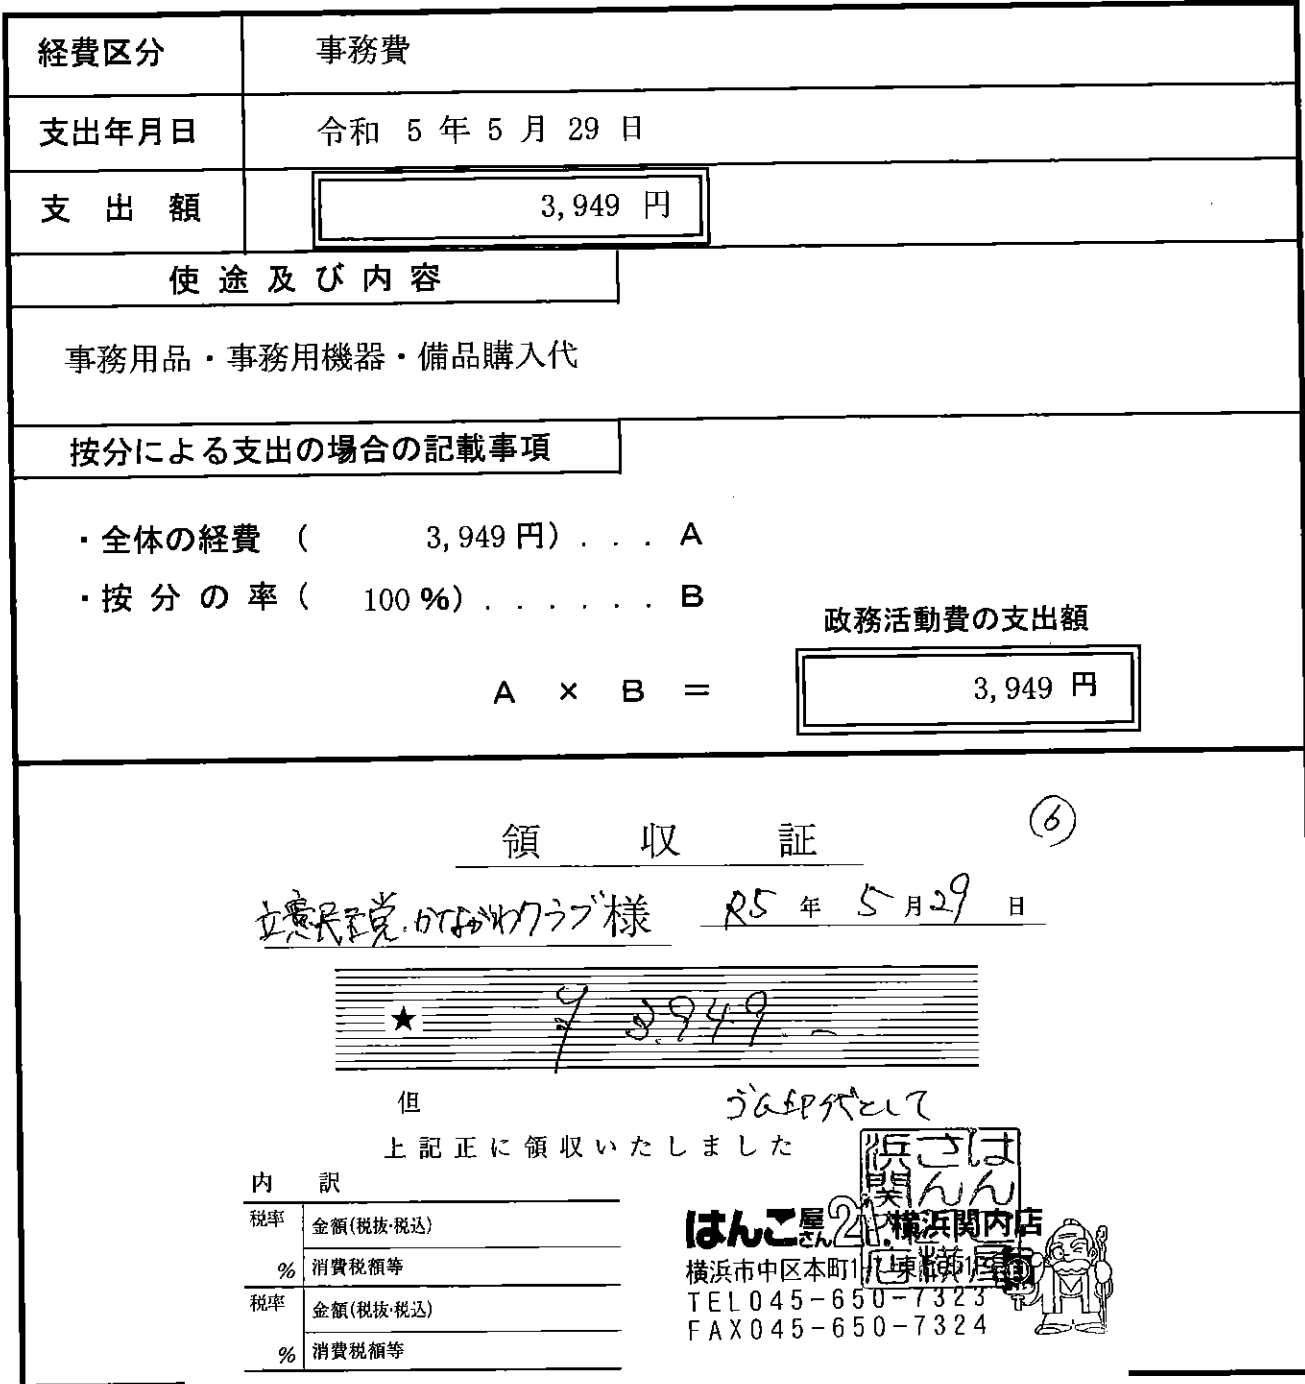 経費区分 事務費
支出年月日 令和 5 年 5 月 29 日
支出額 3,949 円
使途及び内容
事務用品・事務用機器・備品購入代
按分による支出の場合の記載事項
・全体の経費 ( 3,949 円) . . . A
・按分の率 ( 100 %) . . . . . . B
政務活動費の支出額
A × B = 3,949 円
⑥
領収証
立憲民主党・かながわクラブ様 R5 年 5 月 29 日
★ ¥3,949.-
但 ゴム印代として
上記正に領収いたしました
内訳
税率 金額(税抜・税込)
% 消費税額等
税率 金額(税抜・税込)
% 消費税額等
はんこ屋さん21.横浜関内店
横浜市中区本町1-
TEL045-650-7323
FAX045-650-7324